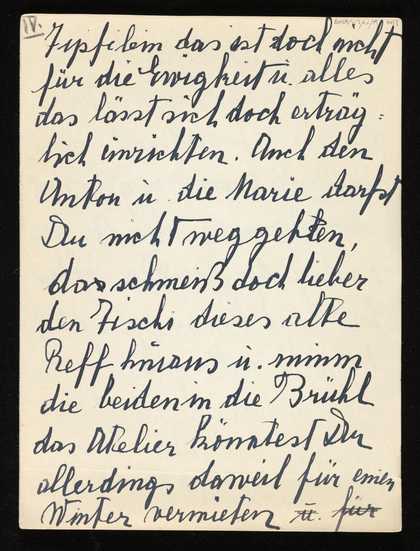 IV.
Zipfilein das ist doch nicht
für die Ewigkeit u. alles
das lässt sich doch erträg=
lich einrichten. Auch den
Anton u. die Marie darfst
Du nicht weggeben,
das schmeiß doch lieber
den Fischi dieses alte
Reff hinaus u. nimm
die beiden in die Brühl
das Atelier könntest Du
allerdings daweil für einen
Winter vermieten u. für